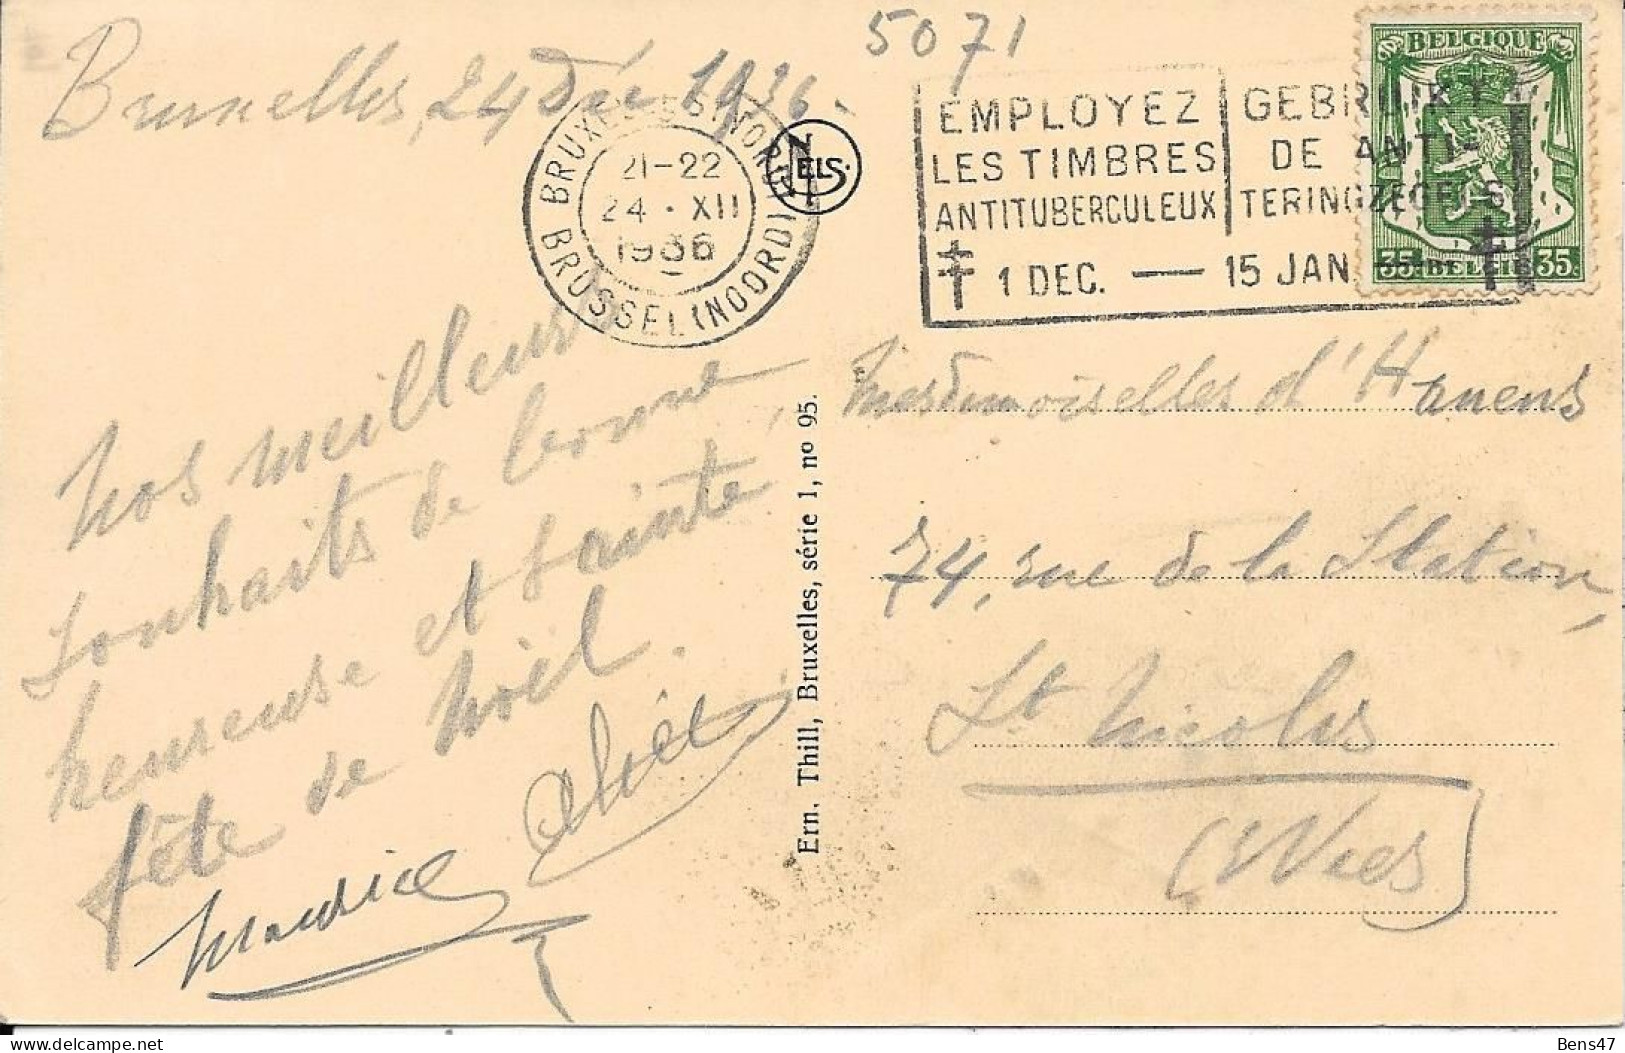 5071
Bruxelles, 24 Déc 1936.
BRUXELLES 1 (NORD)
21-22
24 · XII
1936
BRUSSEL (NOORD)
NELS.
EMPLOYEZ
LES TIMBRES
ANTITUBERCULEUX
GEBRUIKT
DE ANTI-
TERINGZEGELS
1 DEC. — 15 JAN.
BELGIQUE
35 BELGIE 35
Nos meilleurs
souhaits de bonne,
heureuse et sainte
fête de Noël.
Maurice
Ern. Thill, Bruxelles, série 1, no 95.
Mesdemoiselles d'Hanens
74, rue de la Station,
St Nicolas
(Waes)
Bens47